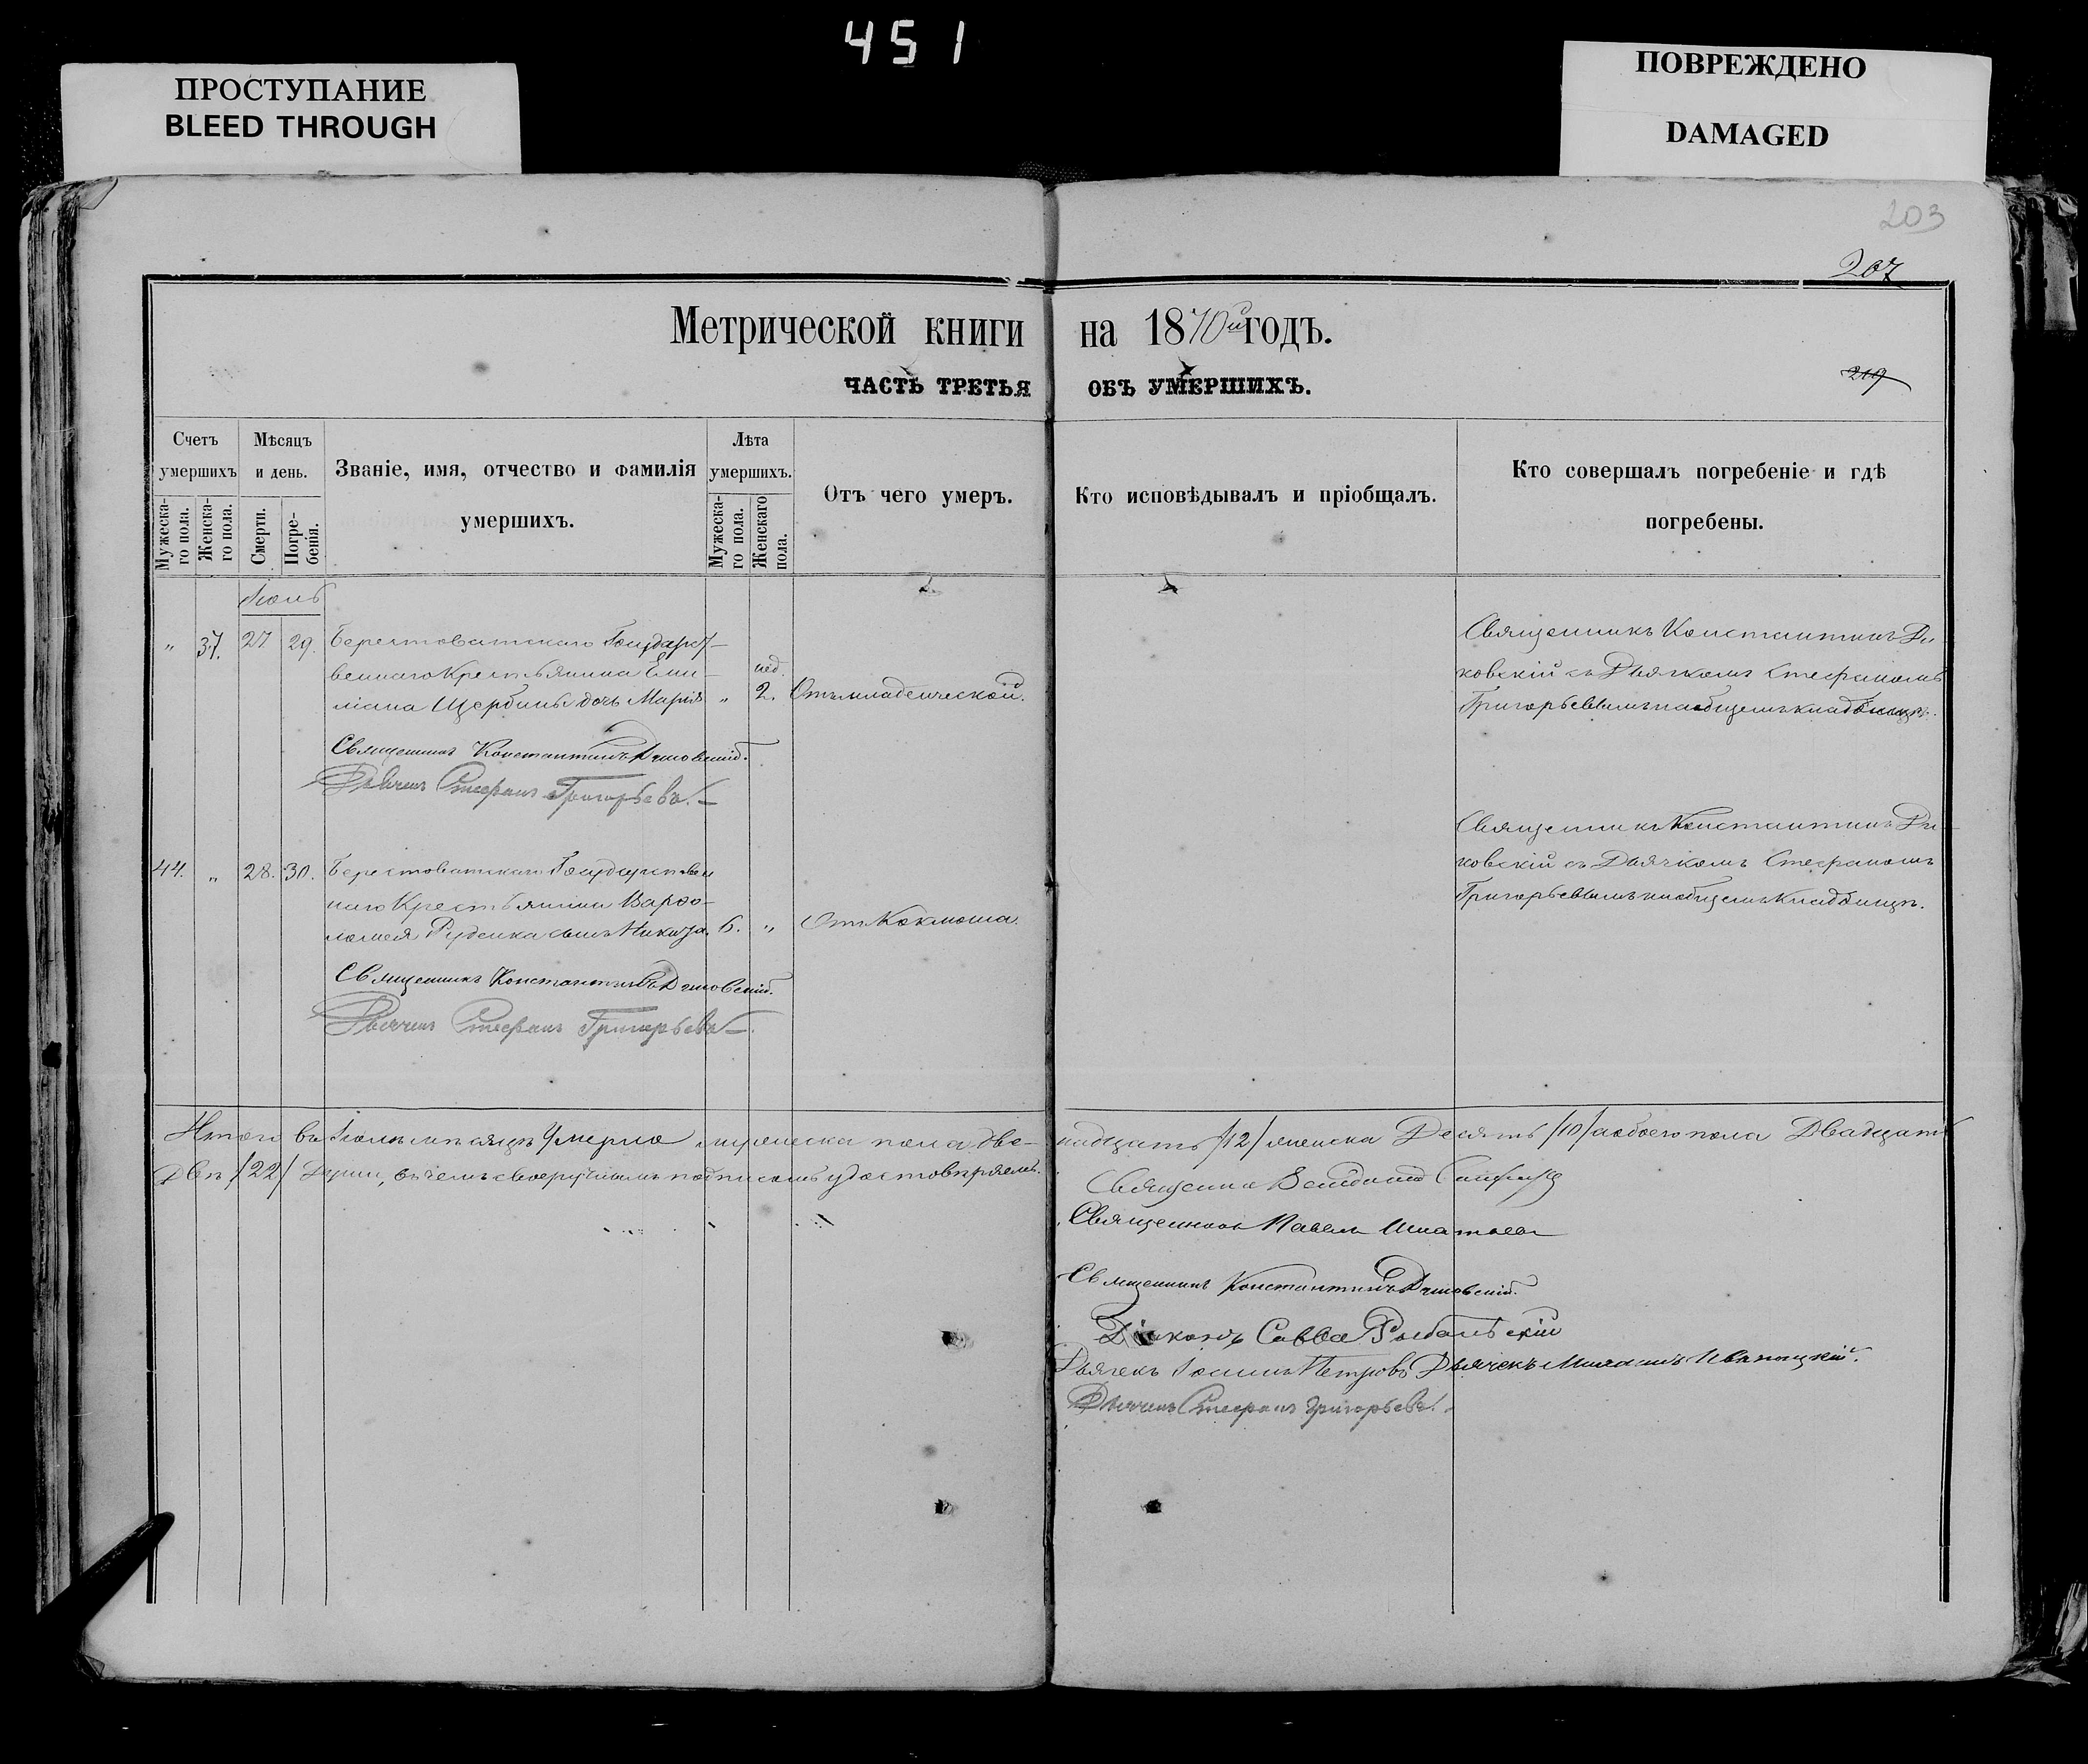 451
ПРОСТУПАНИЕ
BLEED THROUGH
ПОВРЕЖДЕНО
DAMAGED
203
207
Метрической книги на 1870й годъ.
ЧАСТЬ ТРЕТЬЯ ОБЪ УМЕРШИХЪ.
219
Счетъ умершихъ
Мужеска-го пола.
Женска-го пола.
Мѣсяцъ и день.
Смерти.
Погре-бенія.
Званіе, имя, отчество и фамилія
умершихъ.
Лѣта умершихъ.
Мужеска-го пола.
Женскаго пола.
Отъ чего умеръ.
Кто исповѣдывалъ и пріобщалъ.
Кто совершалъ погребеніе и гдѣ
погребены.
Іюль
„ 37. 27 29. Берестоватскаго Государст-
веннаго Крестьянина Еми-
ліана Щербины дочь Марія „ нед. 2. Отъ младенческой.
Священникъ Константинъ
ковскій съ Дьячкомъ Стефаномъ
Григорьевымъ на общемъ кладбищѣ.
Священникъ Константинъ
Дьячекъ Стефанъ Григорьевъ.
44. „ 28. 30. Берестоватскаго Государствен
наго Крестьянина Варфо-
ломея Руденка сынъ 6. „ Отъ Коклюша.
Священникъ Константинъ
ковскій съ Дьячкомъ Стефаномъ
Григорьевымъ на общемъ Кладбищѣ.
Священникъ Константинъ
Дьячекъ Стефанъ Григорьевъ
Итого въ Іюлѣ мѣсяцѣ Умерло мужеска пола две-надцать /12/ женска Десять /10/ а обоего пола Двадцать
Двѣ /22/ Души, въ чемъ своеручнымъ подписомъ удостовѣряемъ.
Священникъ
Священникъ Павелъ
Священникъ Константинъ
Діаконъ Савва Рыбальскій
Дьячекъ Іоаннъ Петровъ Дьячекъ
Дьячекъ Стефанъ Григорьевъ.